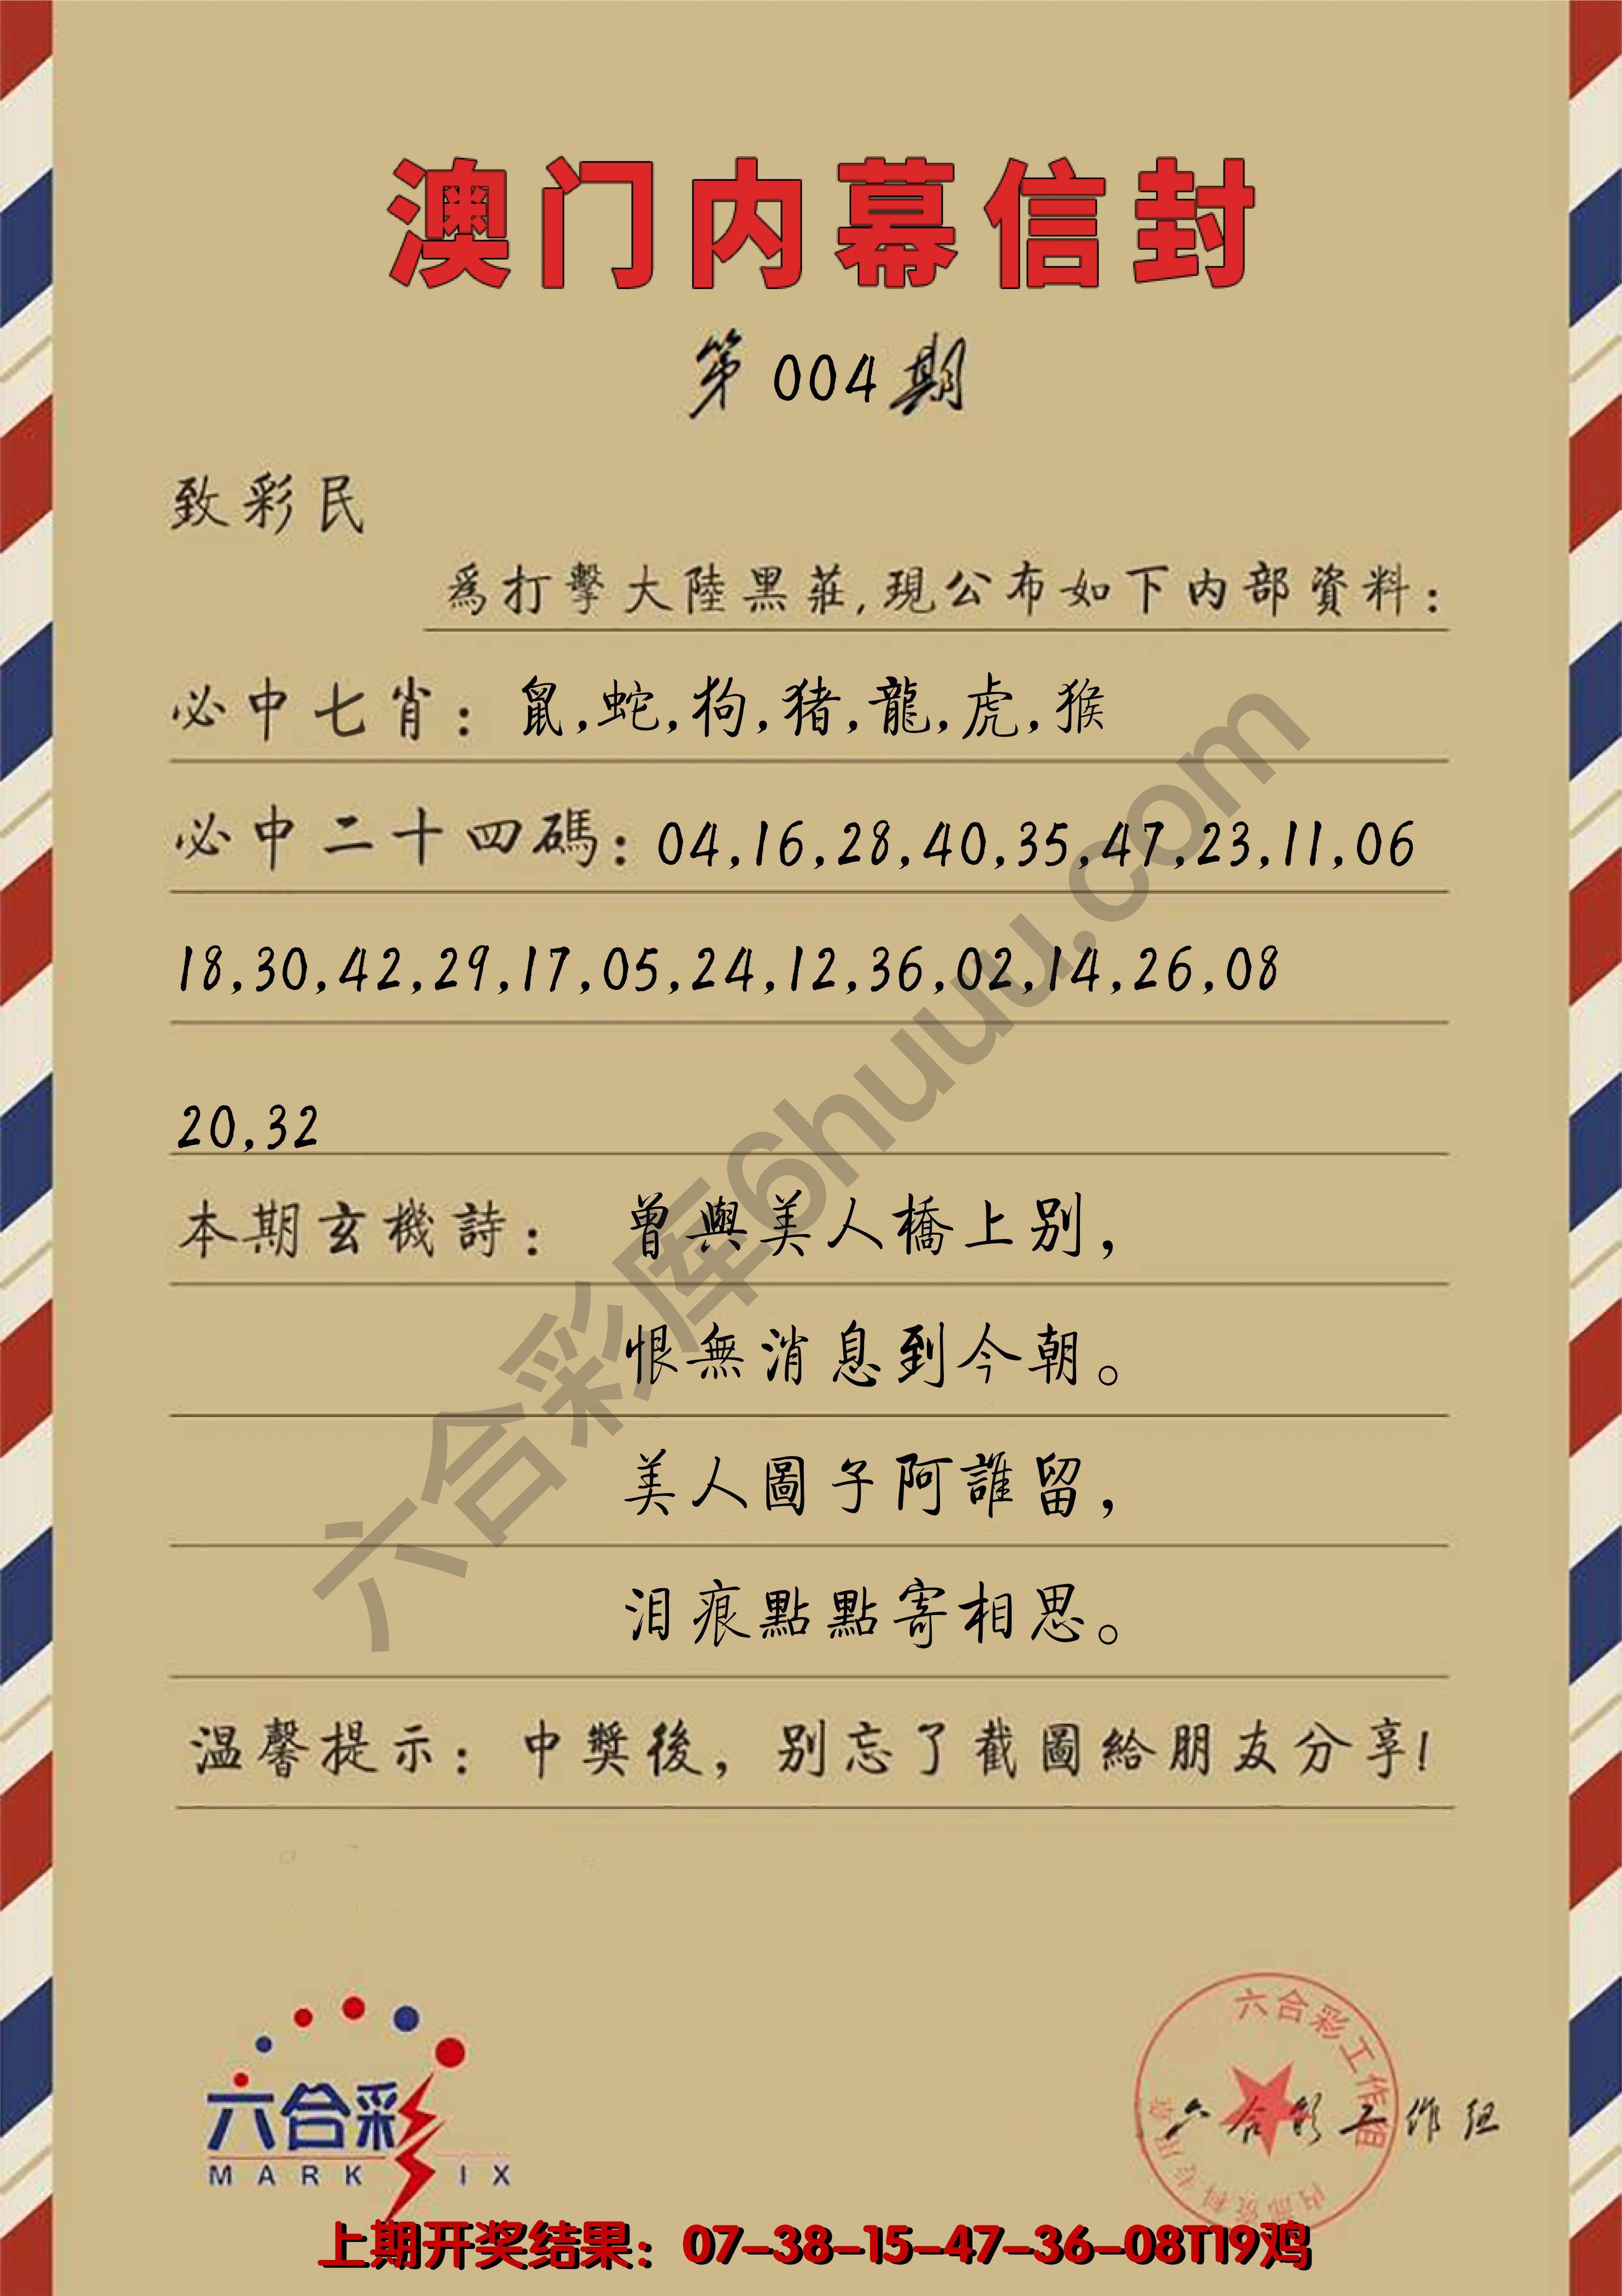 澳门内幕信封
第004期
致彩民
爲打擊大陸黑莊,現公布如下内部資料:
必中七肖: 鼠,蛇,狗,猪,龍,虎,猴
必中二十四碼: 04,16,28,40,35,47,23,11,06
18,30,42,29,17,05,24,12,36,02,14,26,08
20,32
本期玄機詩: 曾與美人橋上别,
恨無消息到今朝。
美人圖子阿誰留,
泪痕點點寄相思。
温馨提示: 中獎後, 别忘了截圖給朋友分享!
六合彩库6huuu.com
六合彩
MARK IX
六合彩工作组
内部资料专用章
六合彩工作组
上期开奖结果: 07-38-15-47-36-08T19鸡